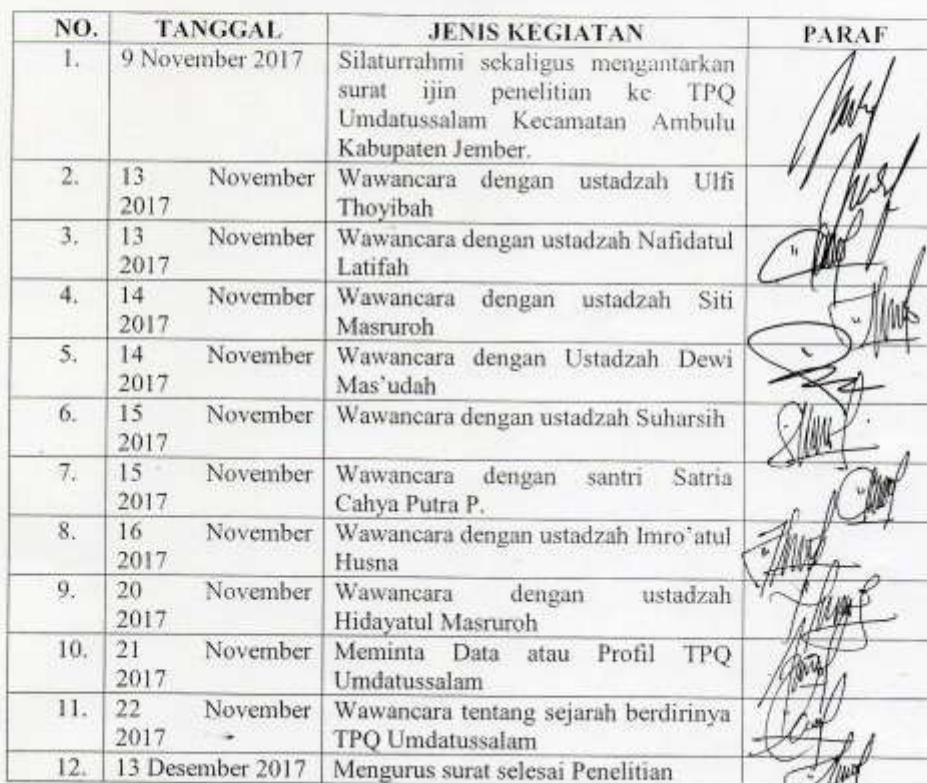 NO. TANGGAL JENIS KEGIATAN PARAF
1. 9 November 2017 Silaturrahmi sekaligus mengantarkan
surat ijin penelitian ke TPQ
Umdatussalam Kecamatan Ambulu
Kabupaten Jember.
2. 13 November Wawancara dengan ustadzah Ulfi
2017 Thoyibah
3. 13 November Wawancara dengan ustadzah Nafidatul
2017 Latifah
4. 14 November Wawancara dengan ustadzah Siti
2017 Masruroh
5. 14 November Wawancara dengan Ustadzah Dewi
2017 Mas'udah
6. 15 November Wawancara dengan ustadzah Suharsih
2017
7. 15 November Wawancara dengan santri Satria
2017 Cahya Putra P.
8. 16 November Wawancara dengan ustadzah Imro'atul
2017 Husna
9. 20 November Wawancara dengan ustadzah
2017 Hidayatul Masruroh
10. 21 November Meminta Data atau Profil TPQ
2017 Umdatussalam
11. 22 November Wawancara tentang sejarah berdirinya
2017 TPQ Umdatussalam
12. 13 Desember 2017 Mengurus surat selesai Penelitian